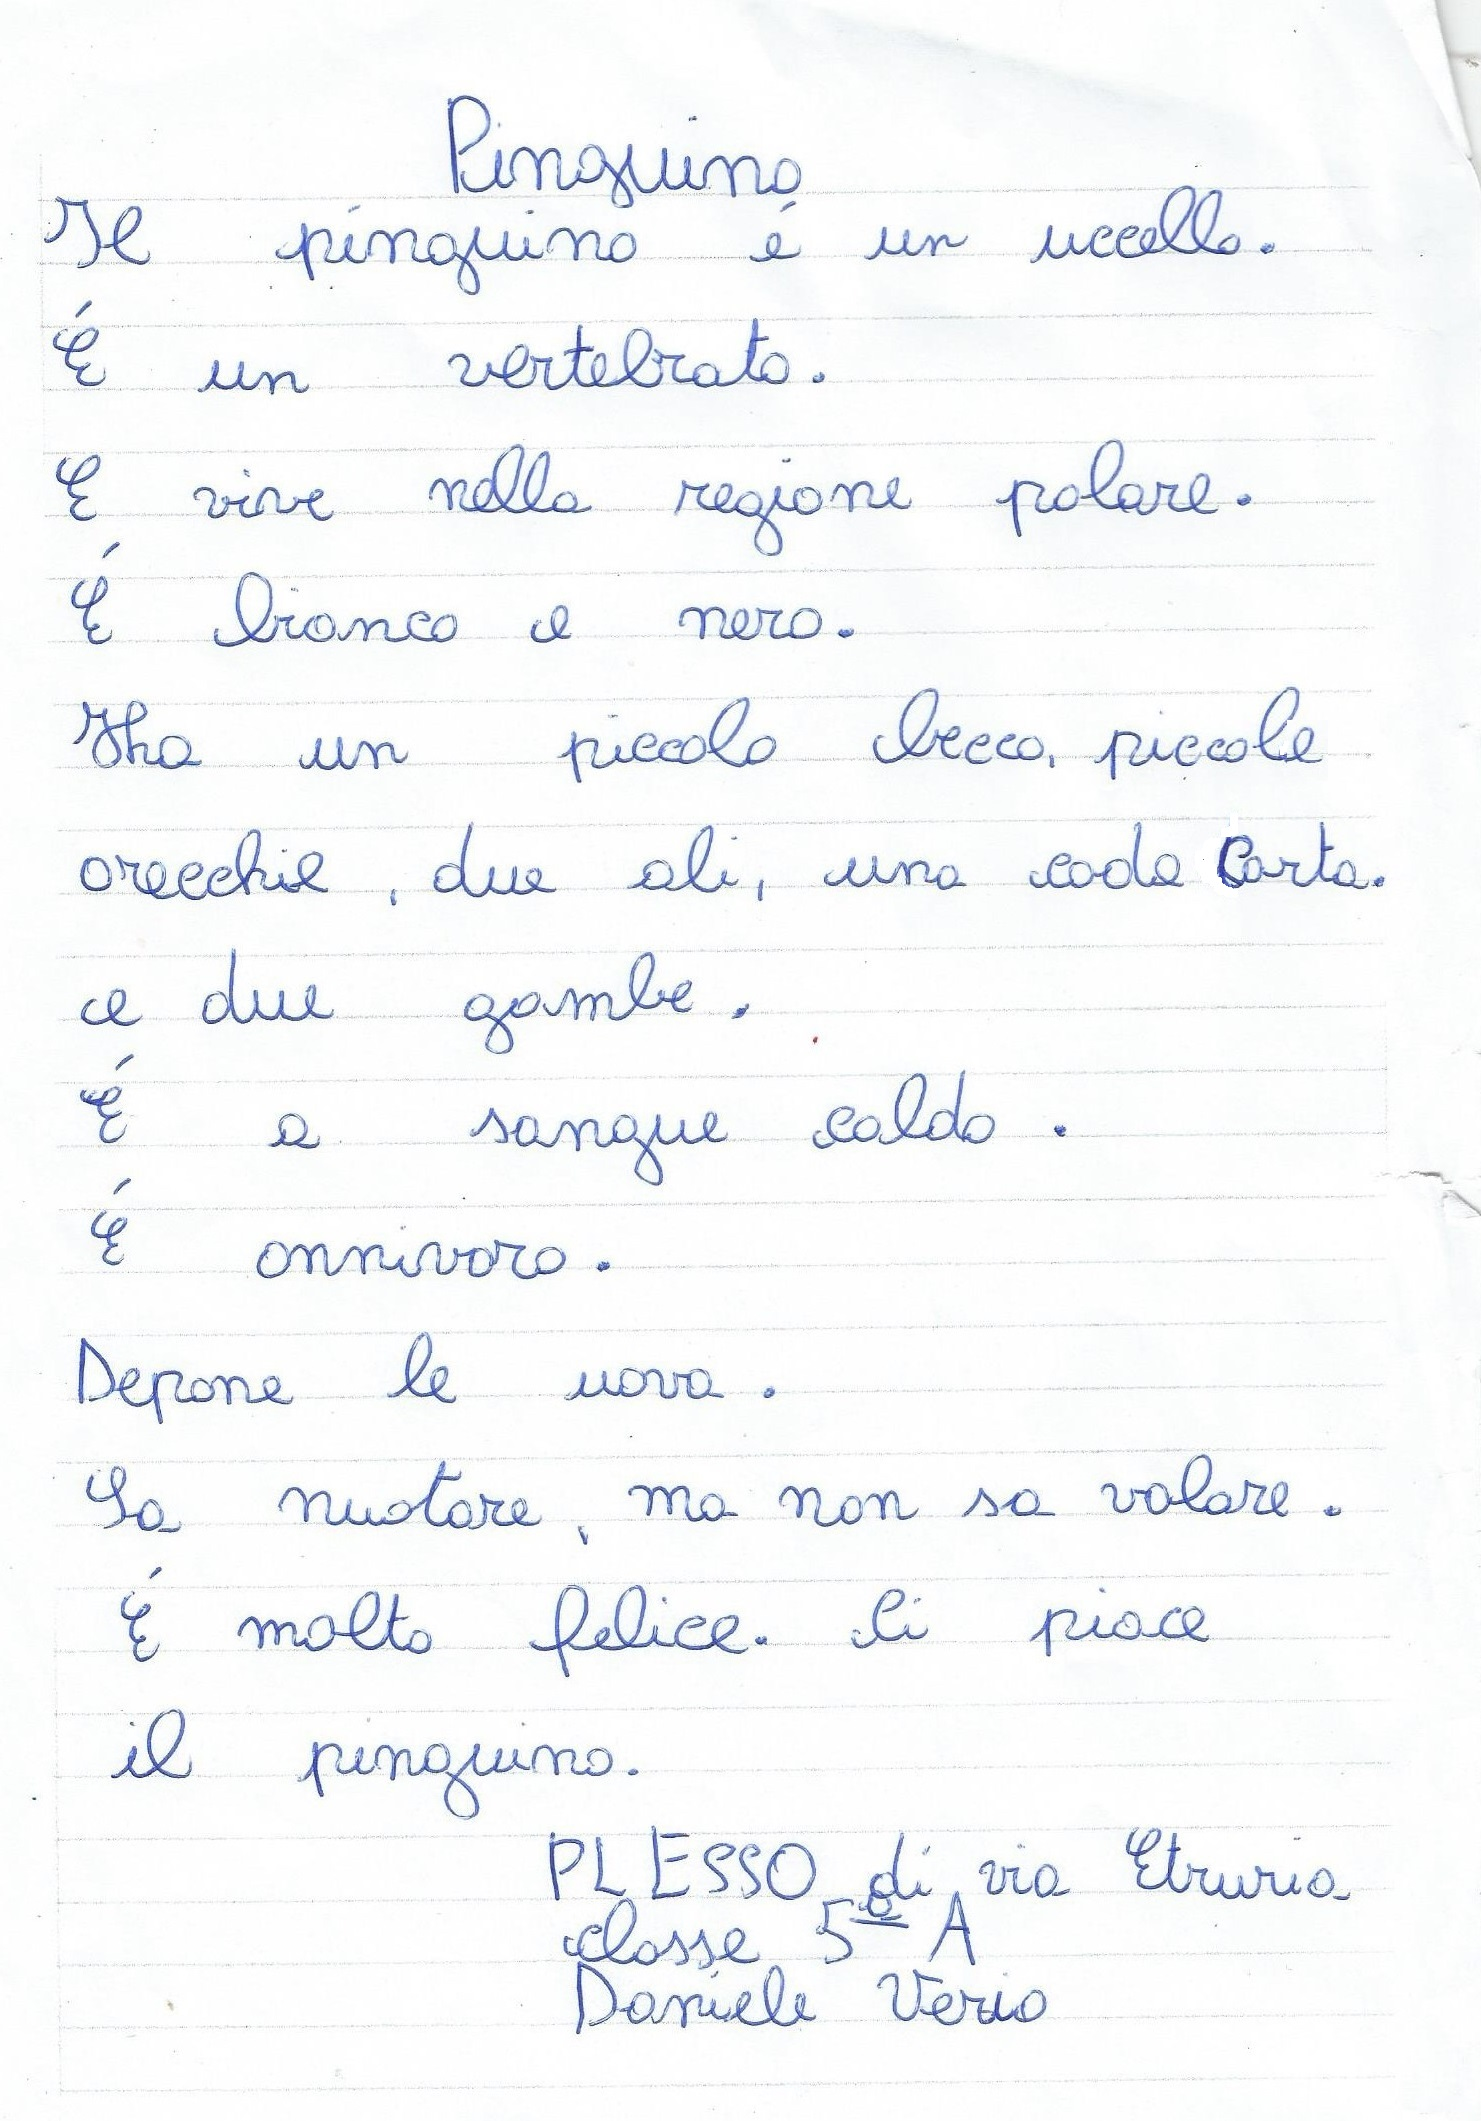 Pinguino
Il pinguino é un uccello.
É un vertebrato.
E vive nella regione polare.
É bianco e nero.
Ha un piccolo becco, piccole
orecchie, due ali, una coda corta.
e due gambe.
É a sangue caldo.
É onnivoro.
Depone le uova.
Sa nuotare, ma non sa volare.
É molto felice. Ci piace
il pinguino.
PLESSO di via Etruria
classe 5ª A
Daniele Verio